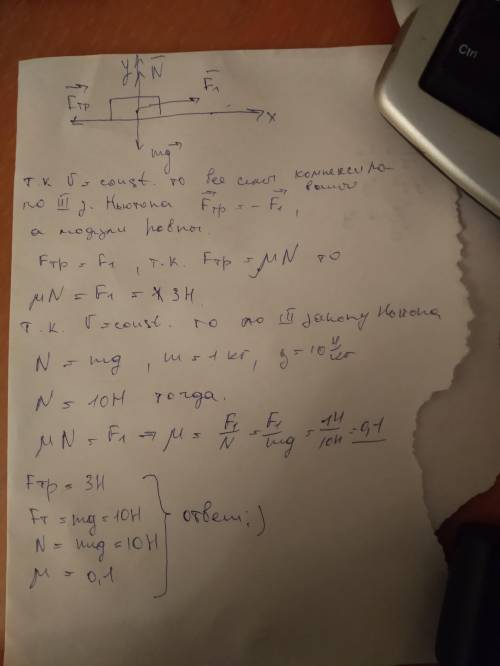 Ctrl
y N̄ F̄₁
F⃗тр x
mg⃗
т.к V = const. то все силы компенсирова-
ваны
по III з. Ньютона F⃗тр = - F⃗₁,
а модули равны.
Fтр = F₁ , т.к. Fтр = μN то
μN = F₁ = 3Н.
т.к. V = const. то по III закону Ньютона
N = mg , m = 1 кг, g = 10 Н/кг
N = 10Н тогда.
μN = F₁ ⇒ μ = F₁/N = F₁/mg = 1Н/10Н = 0,1
Fтр = 3Н
Fт = mg = 10Н
N = mg = 10Н
μ = 0,1
ответ ;)